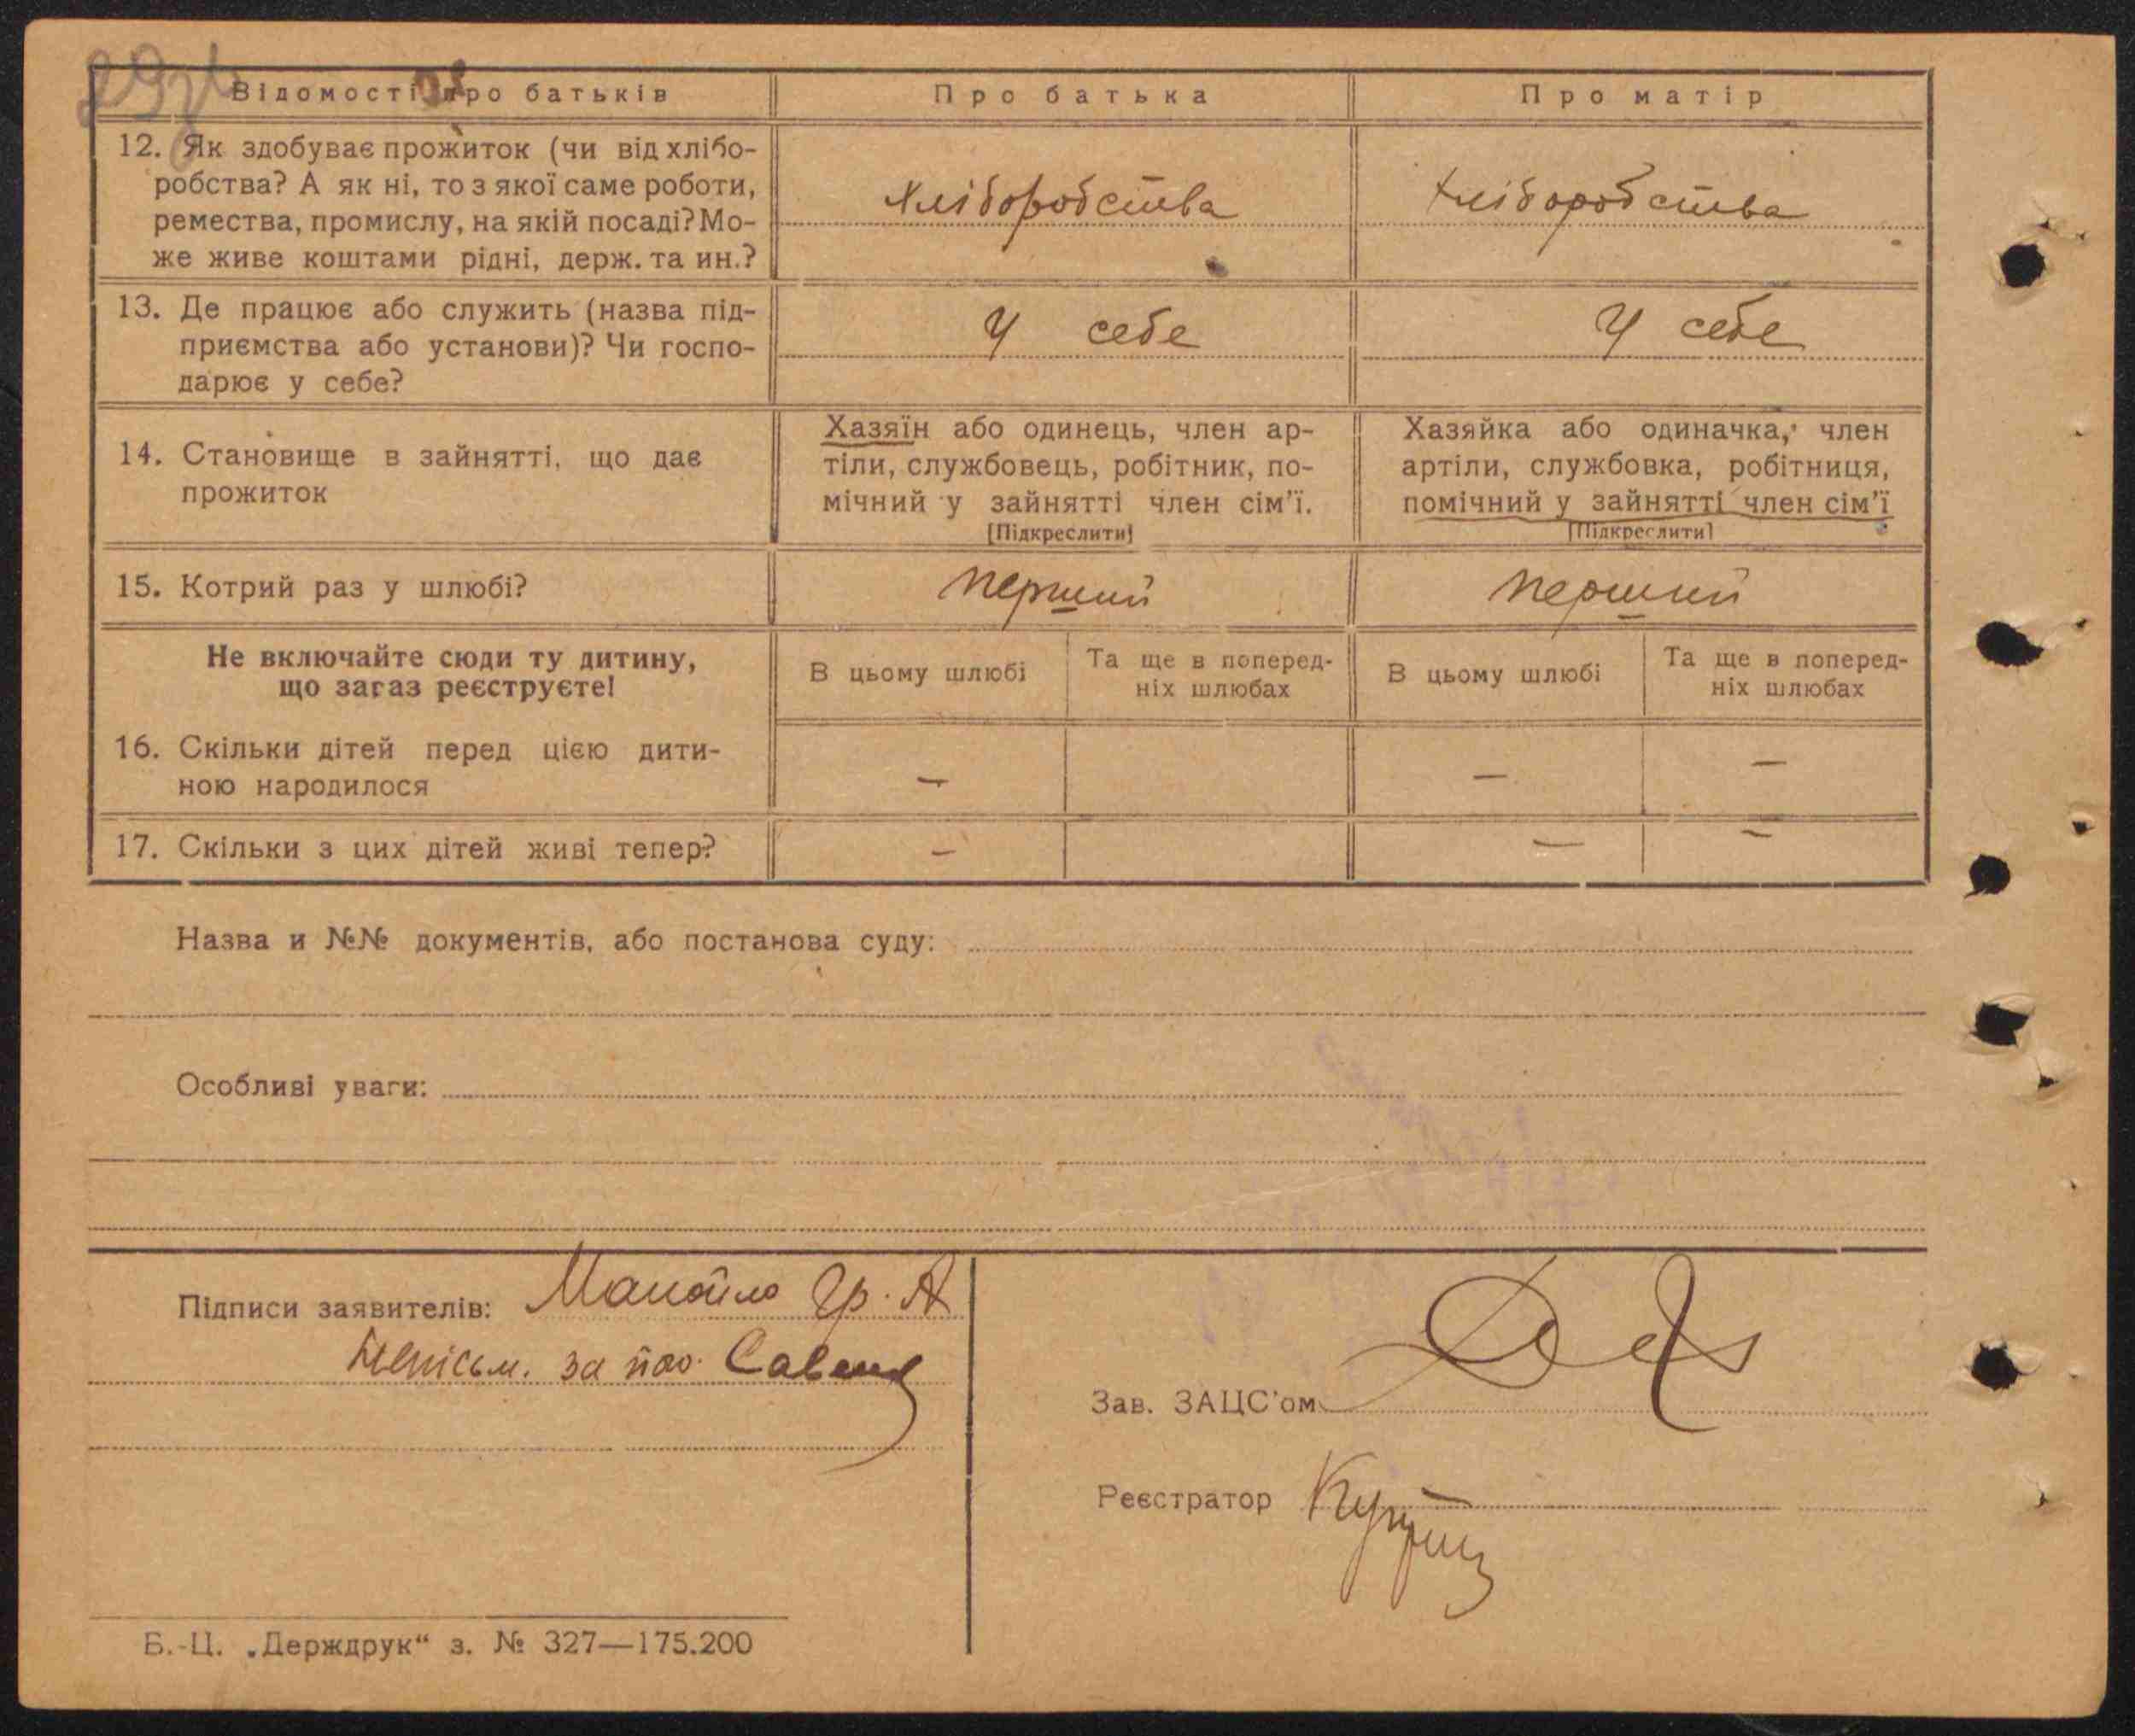 Відомості про батьків
Про батька
Про матір
12. Як здобуває прожиток (чи від хлібо-
робства? А як ні, то з якої саме роботи,
ремества, промислу, на якій посаді? Мо-
же живе коштами рідні, держ. та ин.?
хліборобства
хліборобства
13. Де працює або служить (назва під-
приємства або установи)? Чи госпо-
дарює у себе?
У себе
У себе
14. Становище в зайнятті, що дає
прожиток
Хазяїн або одинець, член ар-
тіли, службовець, робітник, по-
мічний у зайнятті член сім'ї.
[Підкреслити]
Хазяйка або одиначка, член
артіли, службовка, робітниця,
помічний у зайнятті член сім'ї
[Підкреслити]
15. Котрий раз у шлюбі?
перший
перший
Не включайте сюди ту дитину,
що зараз реєструєте!
В цьому шлюбі
Та ще в поперед-
ніх шлюбах
В цьому шлюбі
Та ще в поперед-
ніх шлюбах
16. Скільки дітей перед цією дити-
ною народилося
—
—
—
17. Скільки з цих дітей живі тепер?
—
—
—
Назва и №№ документів, або постанова суду:
Особливі уваги:
Підписи заявителів: Манойло Гр. А
неписьм. за
Зав. ЗАЦС'ом
Реєстратор
Б.-Ц. „Держдрук“ з. № 327—175.200